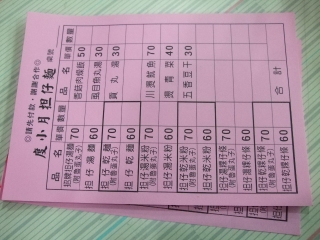 ◎請先付款，謝謝合作◎
度小月担仔麵
桌號
品名 單價 數量
招牌担仔湯麵 70
(附魯蛋丸子)
担仔湯麵 60
担仔乾麵 70
(附魯蛋丸子)
担仔乾麵 60
担仔湯米粉 70
(附魯蛋丸子)
担仔湯米粉 60
担仔乾米粉 70
(附魯蛋丸子)
担仔乾米粉 60
担仔湯粿仔 70
(附魯蛋丸子)
担仔湯粿仔 60
担仔乾粿仔 70
(附魯蛋丸子)
担仔乾粿仔 60
品名 單價 數量
香菇肉燥飯 50
虱目魚丸湯 30
貢丸湯 30
川燙魷魚 70
燙青菜 40
五香豆干 30
合計